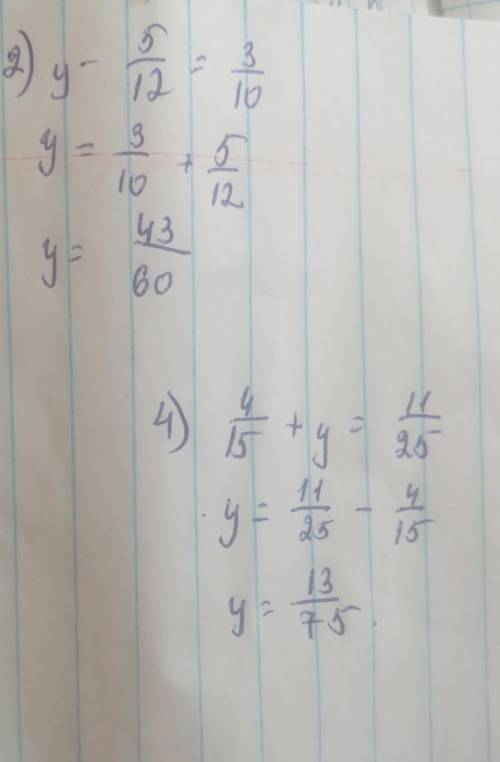 2) y - 5/12 = 3/10
y = 3/10 + 5/12
y = 43/60
4) 4/15 + y = 11/25
y = 11/25 - 4/15
y = 13/75.